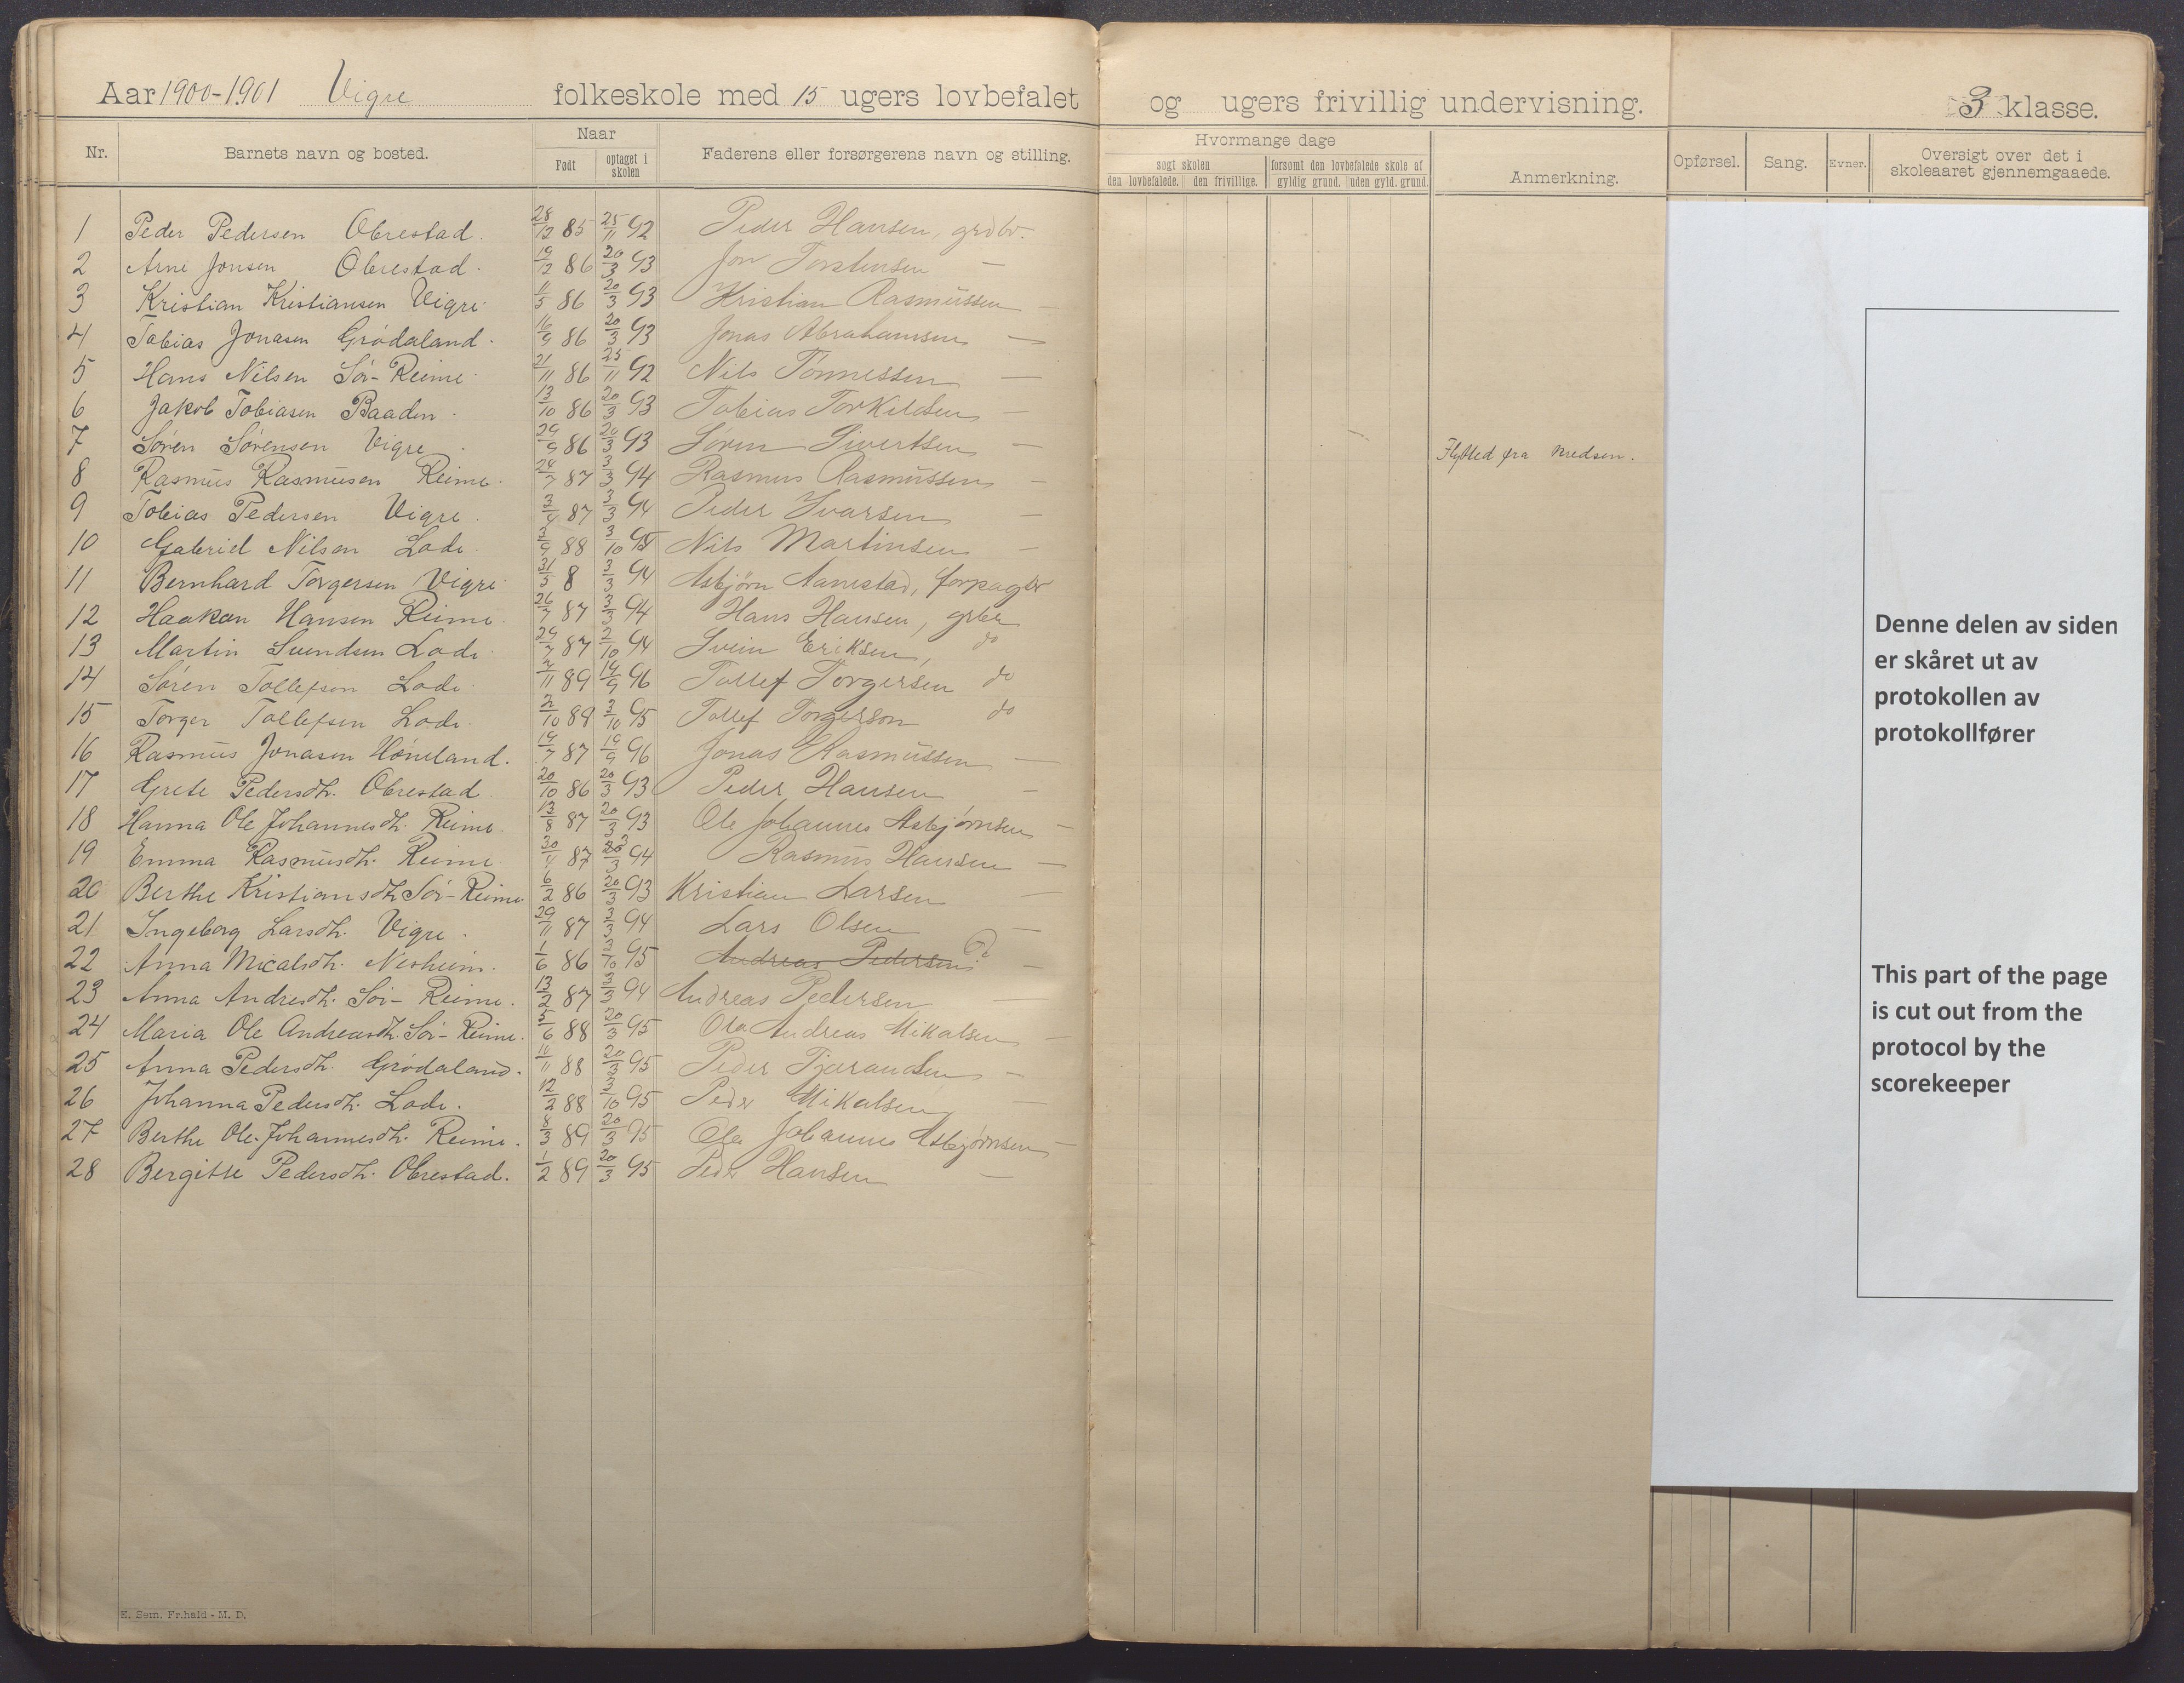 Aar 1900-1901 Vigre folkeskole med 15 ugers lovbefalet og ugers frivillig undervisning. 3 klasse.
Nr. Barnets navn og bosted. Naar Født optaget i skolen Faderens eller forsørgerens navn og stilling. Hvormange dage søgt skolen den lovbefalede. den frivillige. forsømt den lovbefalede skole af gyldig grund. uden gyld. grund. Anmerkning. Opførsel. Sang. Evner. Oversigt over det i skoleaaret gjennemgaaede.
1 Peder Pedersen Obrestad. 28/12 85 25/11 92 Peder Hansen, grdbr.
2 Arne Jonsen Obrestad. 19/12 86 20/3 93 Jon Torstensen —
3 Kristian Kristiansen Vigre. 11/5 86 20/3 93 Kristian Rasmussen —
4 Tobias Jonasen Grødaland. 16/9 86 20/3 93 Jonas Abrahamsen —
5 Hans Nilsen Sör-Reime. 21/11 86 25/11 92 Nils Tönnessen —
6 Jakob Tobiasen Baaden. 13/10 86 20/3 93 Tobias Torkildsen —
7 Søren Sørensen Vigre. 29/9 86 20/3 93 Søren Sivertsen — Flytted fra kredsen.
8 Rasmus Rasmusen Reime. 24/7 87 3/3 94 Rasmus Rasmussen —
9 Tobias Pedersen Vigre. 3/4 87 3/3 94 Peder Ivarsen —
10 Gabriel Nilsen Lode. 2/9 88 3/10 95 Nils Martinsen —
11 Bernhard Torgersen Vigre. 31/5 8 3/3 94 Asbjørn Aanestad, forpagter
12 Haakon Hansen Reime. 26/7 87 3/3 94 Hans Hansen, grbr
13 Martin Svendsen Lode. 29/7 87 2/10 94 Svein Eriksen, do
14 Søren Tollefsen Lode. 2/11 89 19/9 96 Tollef Torgersen do
15 Torger Tollefsen Lode. 2/10 88 3/10 95 Tollef Torgerson do
16 Rasmus Jonasen Høneland. 19/7 87 19/9 96 Jonas Rasmussen —
17 Grete Pedersdtr. Obrestad 20/10 86 20/3 93 Peder Hansen —
18 Hanna Ole Johannesdtr. Reime. 13/8 87 20/3 93 Ole Johannes Asbjørnsen —
19 Emma Rasmusdtr. Reime 30/4 87 3/3 94 Rasmus Hansen —
20 Berthe Kristiansdtr. Sör-Reime. 6/2 86 20/3 93 Kristian Larsen —
21 Ingeborg Larsdtr. Vigre. 29/11 87 3/3 94 Lars Olsen —
22 Anna Micalsdtr. Nesheim. 1/6 86 3/10 95 Andreas Pedersen ? —
23 Anna Andresdtr. Sör-Reime. 13/2 87 3/3 94 Andreas Pedersen —
24 Maria Ole Andreasdtr. Sör-Reime. 5/6 88 20/3 95 Ole Andreas Mikalsen —
25 Anna Pedersdtr. Grødaland. 11/11 88 20/3 95 Peder Tjerandsen —
26 Johanna Pedersdtr. Lode. 12/2 88 3/10 95 Peder Mikalsen —
27 Berthe Ole-Johannesdtr. Reime. 8/3 89 20/3 95 Ole Johannes Asbjørnsen —
28 Bergitte Pedersdtr. Obrestad. 1/2 89 20/3 95 Peder Hansen —
Denne delen av siden
er skåret ut av
protokollen av
protokollfører
This part of the page
is cut out from the
protocol by the
scorekeeper
E. Sem. Fr.hald - M. D.